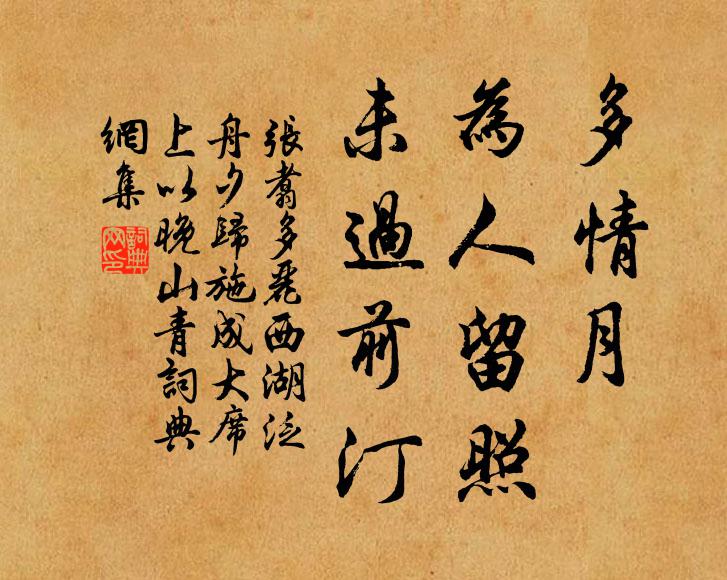 多情月
為人留照
未過前汀
張翥多麗西湖泛
舟夕歸施成大席
上以晚山青詞典
網集
詞典
網印